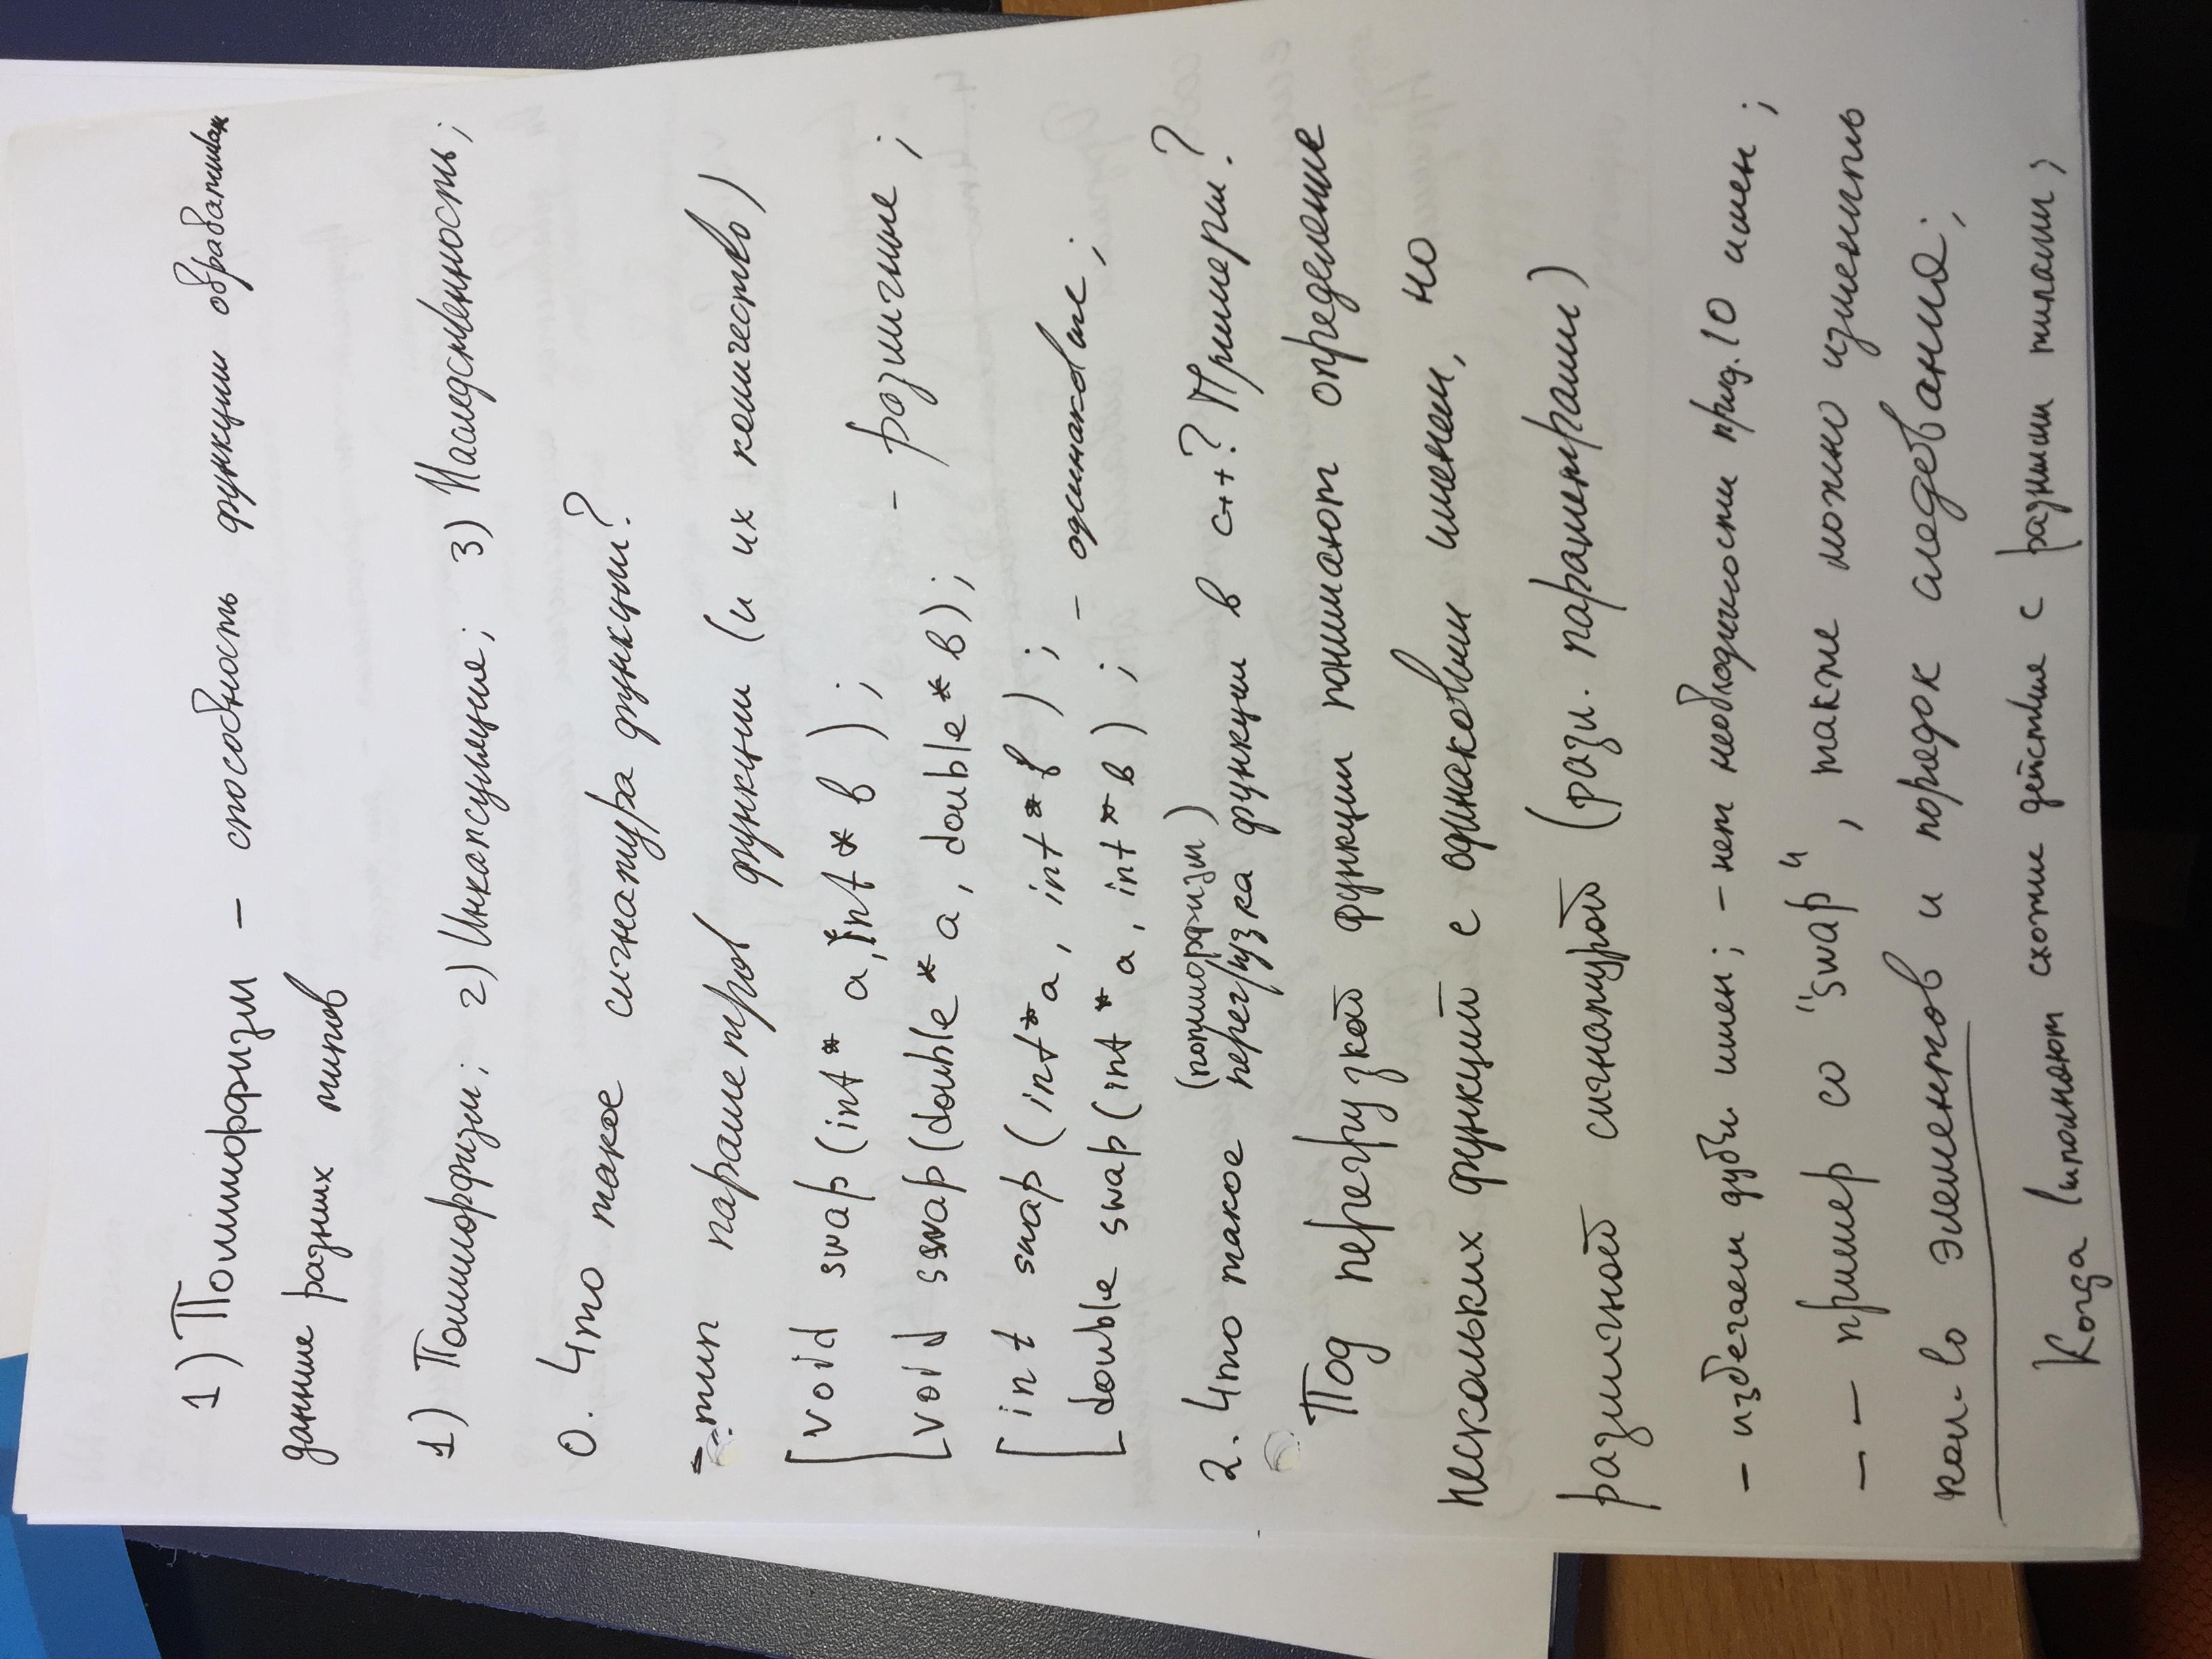 1) Полиморфизм – способность функции обрабатывать
данные разных типов
1) Полиморфизм; 2) Инкапсуляция; 3) Наследственность;
0. Что такое сигнатура функции?
- тип параметров функции (и их количество)
void swap(int* a, int* b);
void swap(double* a, double* b); - различные;
int swap(int* a, int* b);
double swap(int* a, int* b); - одинаковые;
(полиморфизм)
2. Что такое перегрузка функции в c++? Примеры?
Под перегрузкой функции понимают определение
нескольких функций с одинаковым именем, но
различной сигнатурой (разл. параметрами)
– избегаем дубл. имен; – нет необходимости прид. 10 имен;
– – пример со "swap", также можно изменить
кол-во элементов и порядок следования;
Когда выполняют схожие действия с разными типами;